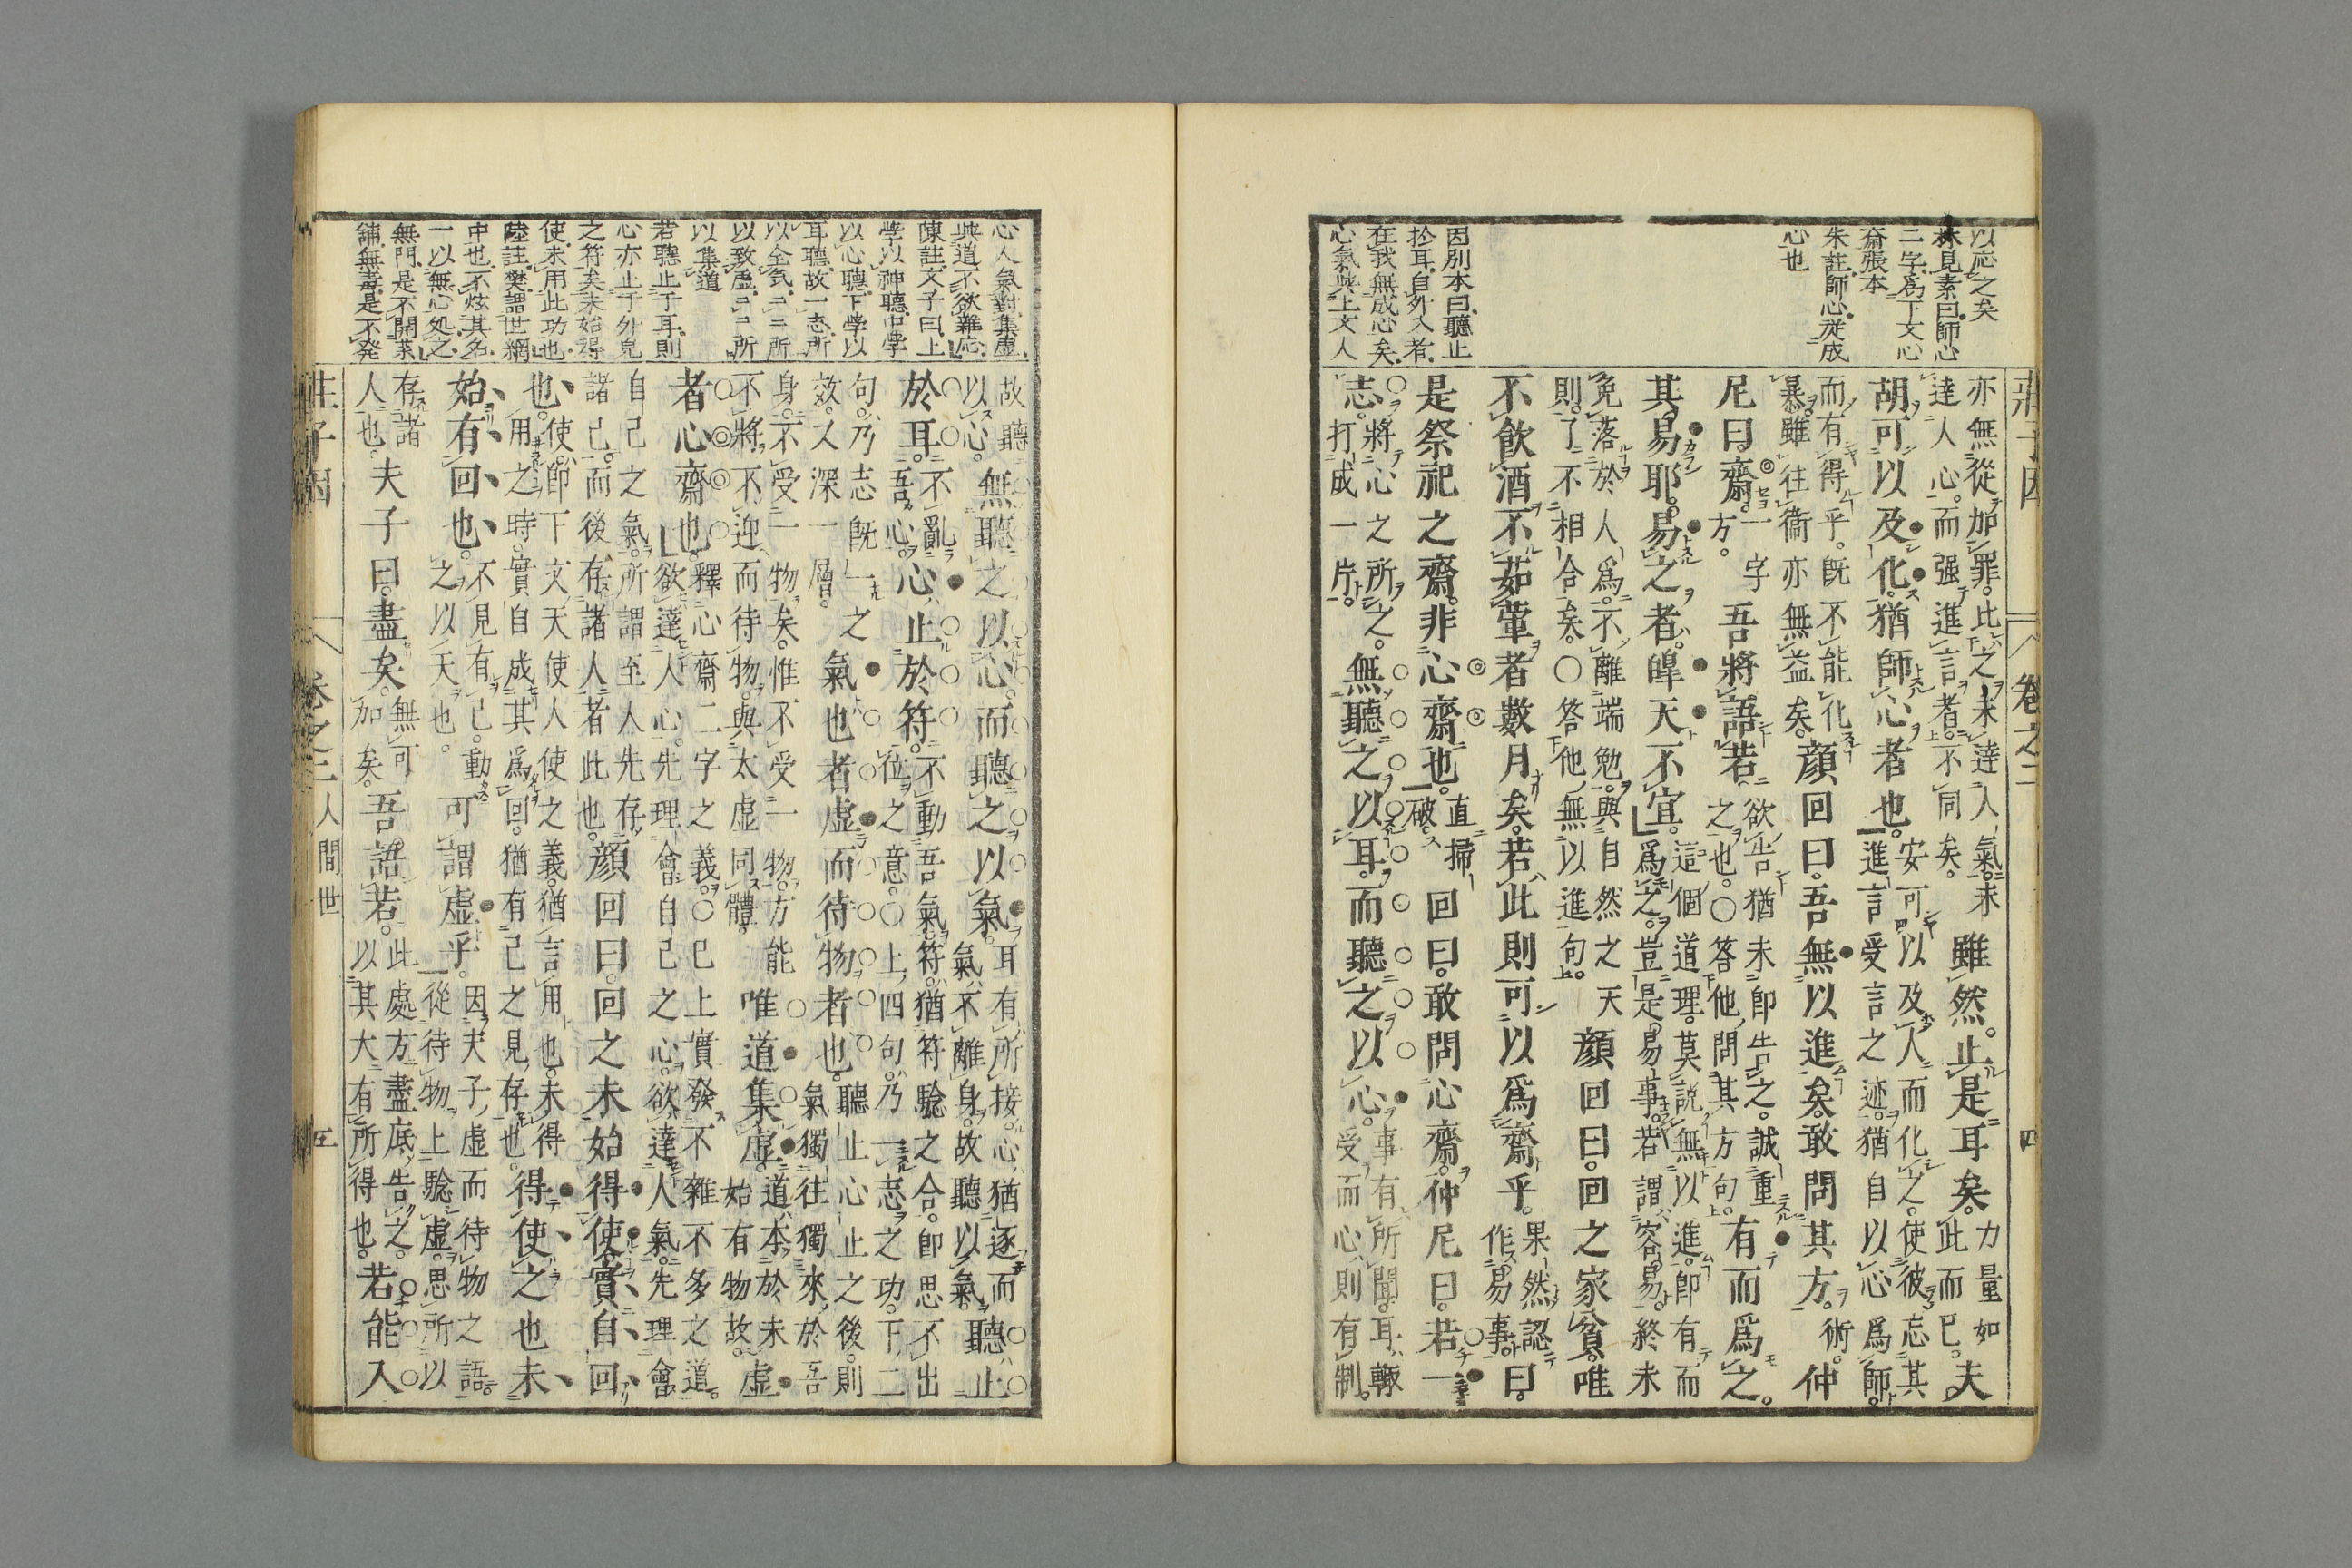 以応之矣
林見素曰師心
二字為下文心
齋張本
朱註師心従成
心也
因別本曰聽止
於耳自外入者
在我無成心矣
心氣與上文人
莊子因 卷之二 四
亦無從加罪此之未達人氣未
達人心而强進言者不同矣
雖然止是耳矣
力量如
此而已
夫
胡可以及化猶師心者也
安可以及人而化之使彼忘其
進言受言之迹猶自以心爲師
而有得乎旣不能化
暴雖往衞亦無益矣
顔回曰吾無以進矣敢問其方
術
仲
尼曰齋
一字
方
吾將語若
欲告猶未卽告之誠重
之也○答他問其方句
有而爲之
其易耶易之者皥天不宜
這個道理莫説無以進卽有而
爲之豈是易事若謂容易終未
免落於人爲不離端勉與自然之天
則了不相合矣○答他無以進句
顔回曰回之家貧唯
不飮酒不茹葷者數月矣若此則可以爲齋乎
果然認
作易事
曰
是祭祀之齋非心齋也
直掃
一破
回曰敢問心齋仲尼曰若一
志
將心之所之
打成一片
無聽之以耳而聽之以心
事有所聞耳輙
受而心則有制
心人氣對集虛
與道不欲雜応
陳註文子曰上
學以神聽中學
以心聽下學以
耳聽故一志所
以全氣二二所
以致虛二二所
以集道
若聽止于耳則
心亦止于外皃
之符矣未始得
使未用此功也
陸註樊謂世網
中也不炫其名
一以無心処之
無門是不開菜
舖無毒是不発
故聽
以心
無聽之以心而聽之以氣
耳有所接心猶逐而
氣不離身故聽以氣
聽止
於耳
不亂
吾心
心止於符
不動吾氣符猶符驗之合卽思不出
位之意○上四句乃一志之功下二
句乃志旣一之
效又深一層
氣也者虛而待物者也
聽止心止之後則
氣獨往獨來於吾
身不受一物矣惟不受一物方能
不將不迎而待物與太虛同體
唯道集虛
道本於未
始有物故
虛
者心齋也
釋心齋二字之義○已上實發不雜不多之道
欲達人心先理會自己之心欲達人氣先理會
自己之氣所謂至人先存
諸己而後存諸人者此也
顔回曰回之未始得使實自回
也
使卽下文天使人使之義猶言用也未得
用之時實自成其爲回猶有己之見存也
得使之也未
始有回也
不見有己動
之以天也
可謂虛乎
因夫子虛而待物之語
從待物上驗虛思所以
存諸
人也
夫子曰盡矣
無可
加矣
吾語若
此處方盡底告之
以其大有所得也
若能入
莊子因 卷之二 人間世 五